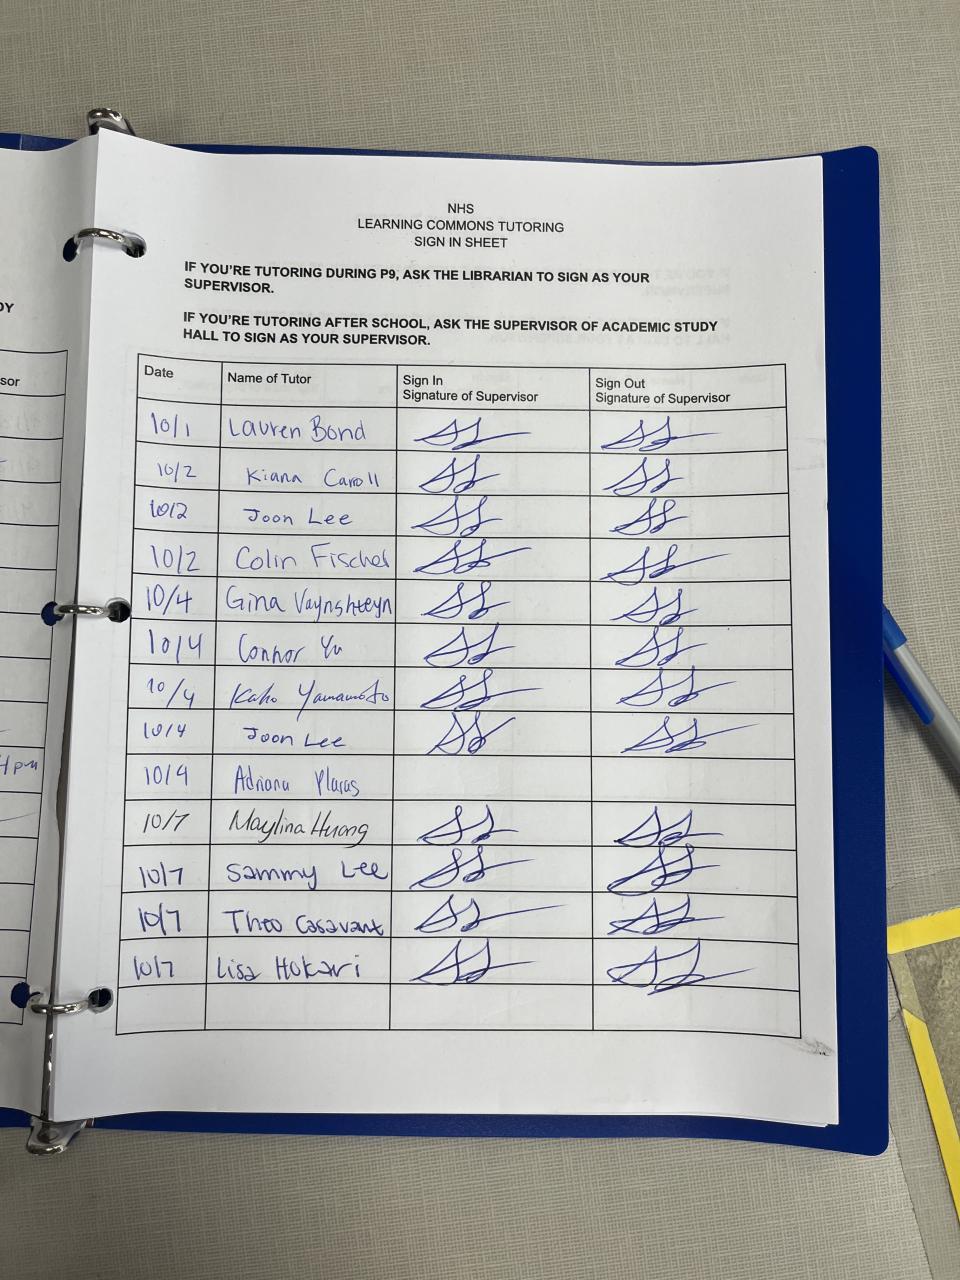 NHS
LEARNING COMMONS TUTORING
SIGN IN SHEET
IF YOU'RE TUTORING DURING P9, ASK THE LIBRARIAN TO SIGN AS YOUR
SUPERVISOR.
IF YOU'RE TUTORING AFTER SCHOOL, ASK THE SUPERVISOR OF ACADEMIC STUDY
HALL TO SIGN AS YOUR SUPERVISOR.
Date Name of Tutor Sign In Signature of Supervisor Sign Out Signature of Supervisor
10/1 Lauren Bond
10/2 Kiana Caroll
10/2 Joon Lee
10/2 Colin Fischer
10/4 Gina Vaynshteyn
10/4 Connor Yu
10/4 Kaho Yamamoto
10/4 Joon Lee
10/4 Adriana
10/7 Maylina Huang
10/7 Sammy Lee
10/7 Theo Casavant
10/7 Lisa Hokari